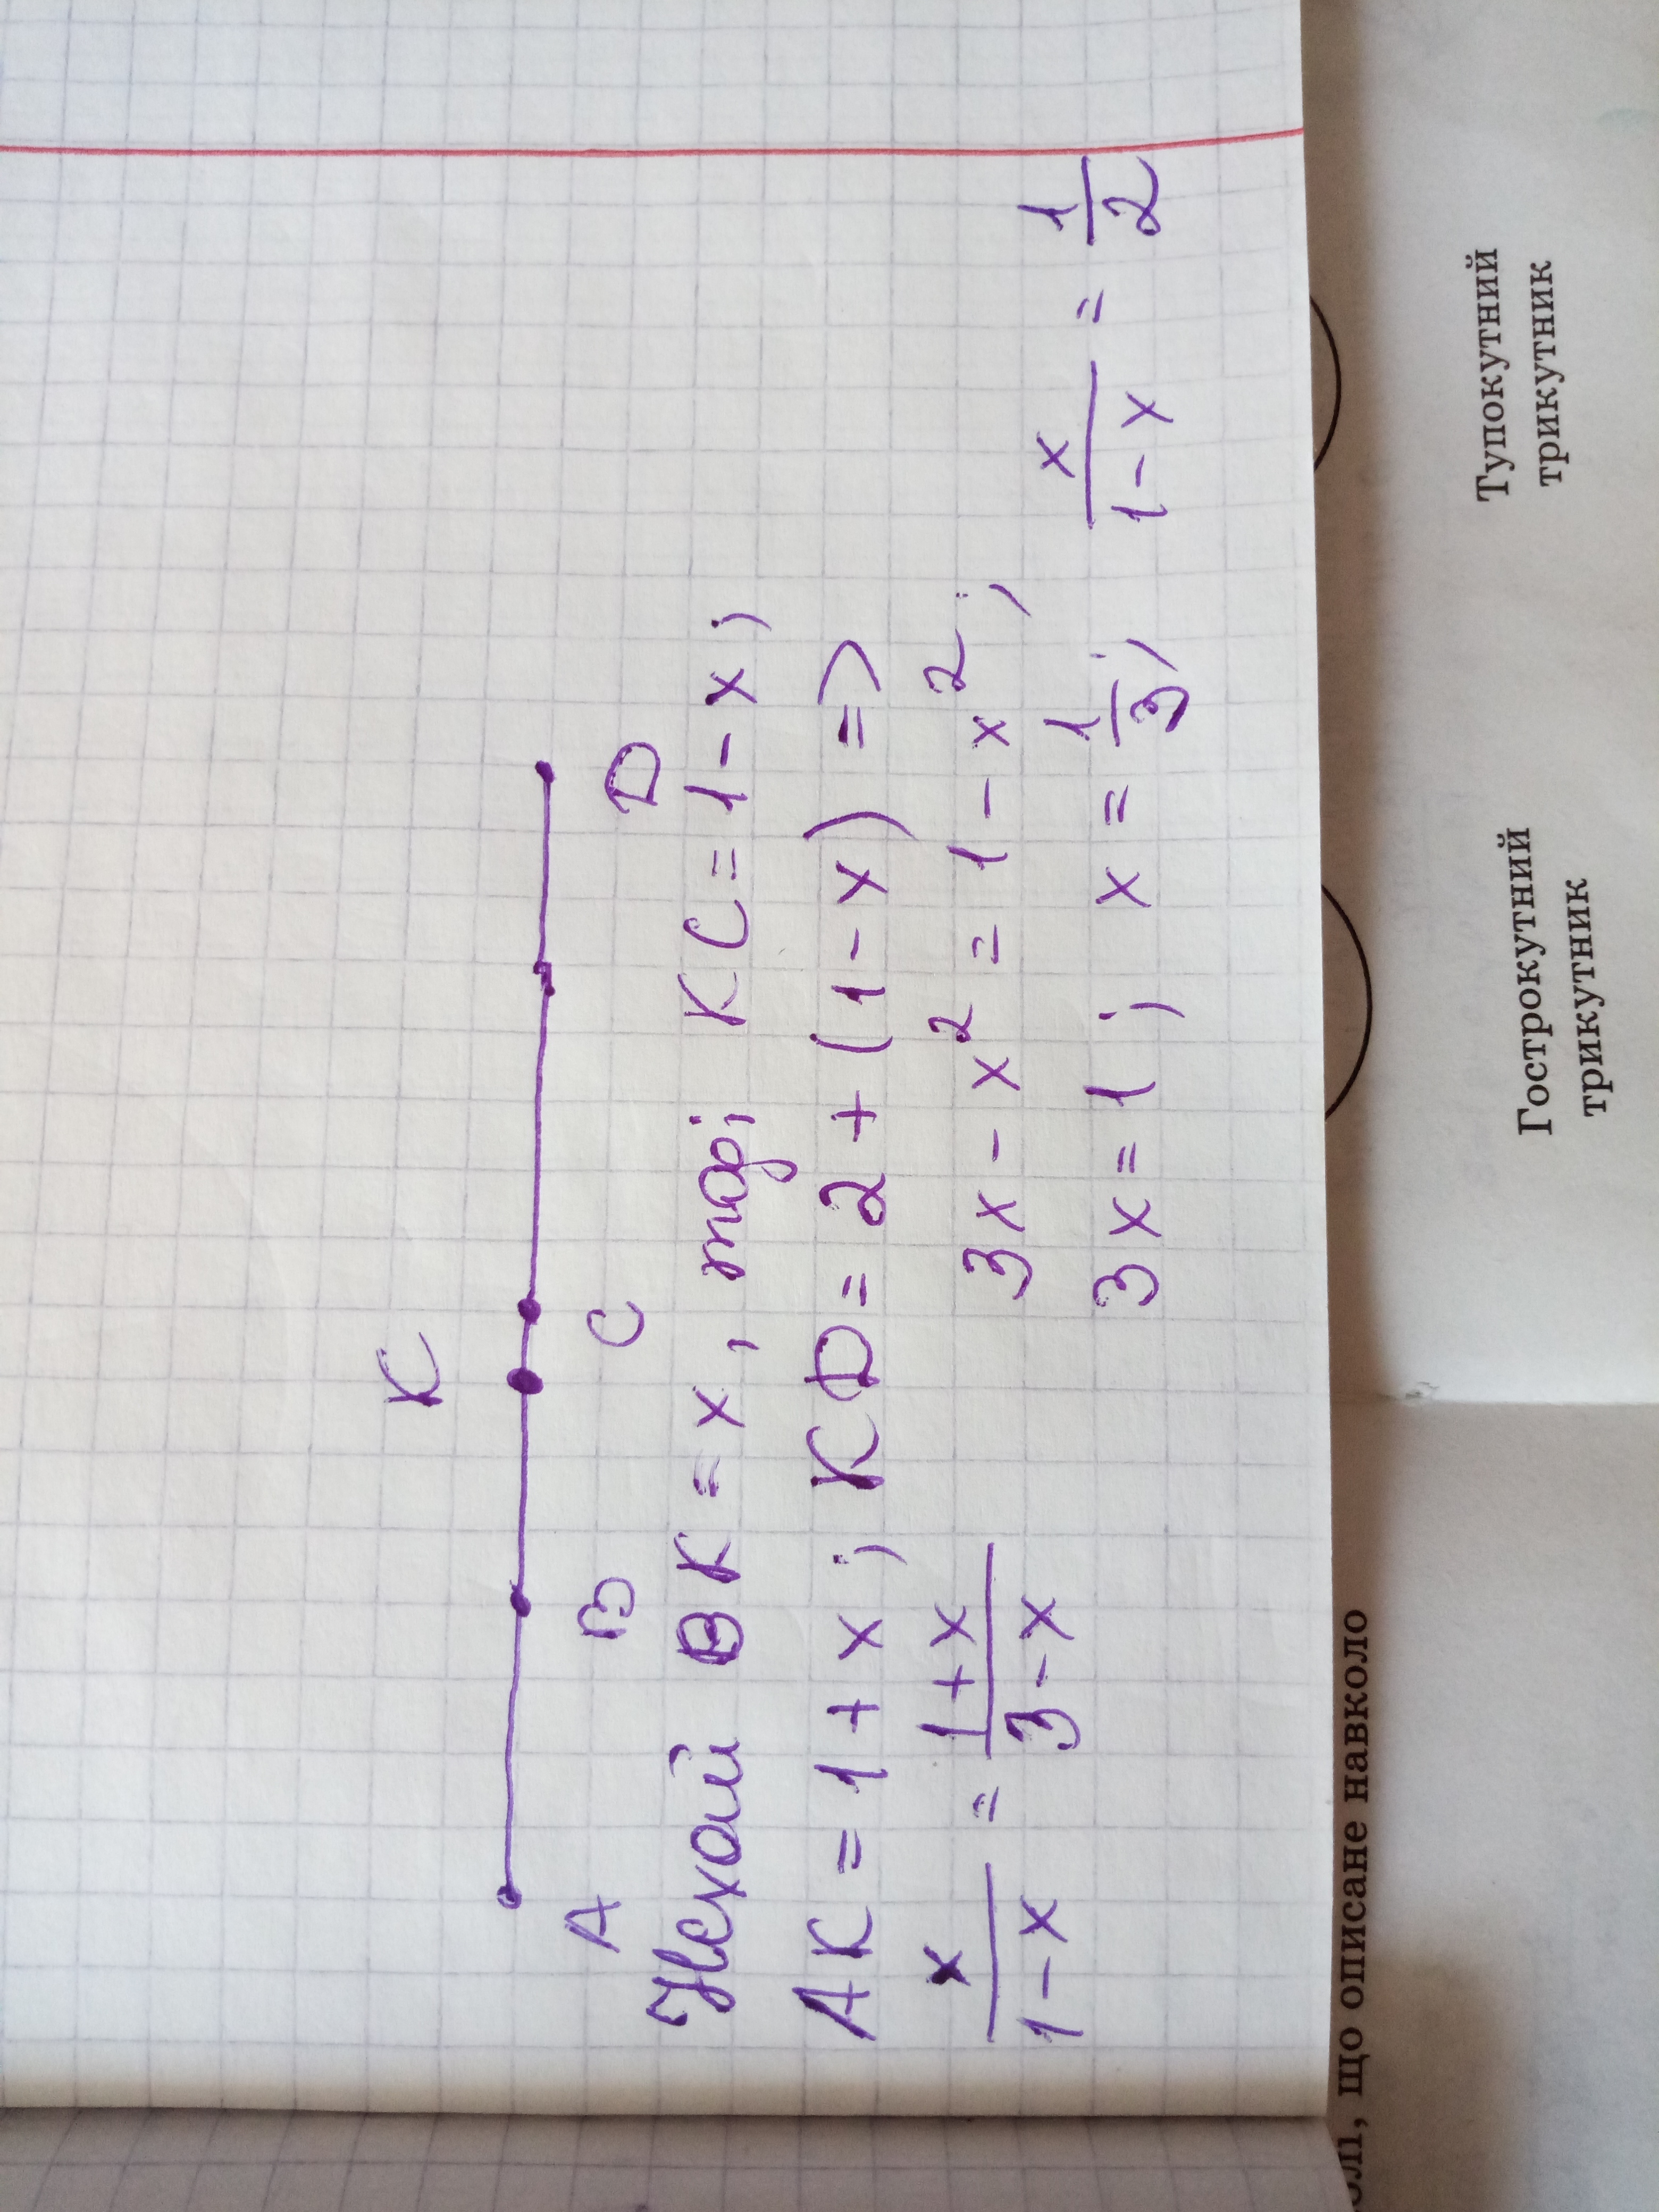 K
A B C D
Нехай BK = x, тоді KC = 1 - x;
AK = 1 + x; KD = 2 + (1 - x) =>
x/(1-x) = (1+x)/(3-x) 3x - x² = 1 - x²;
3x = 1; x = 1/3; x/(1-x) = 1/2
що описане навколо
Гострокутний
трикутник
Тупокутний
трикутник